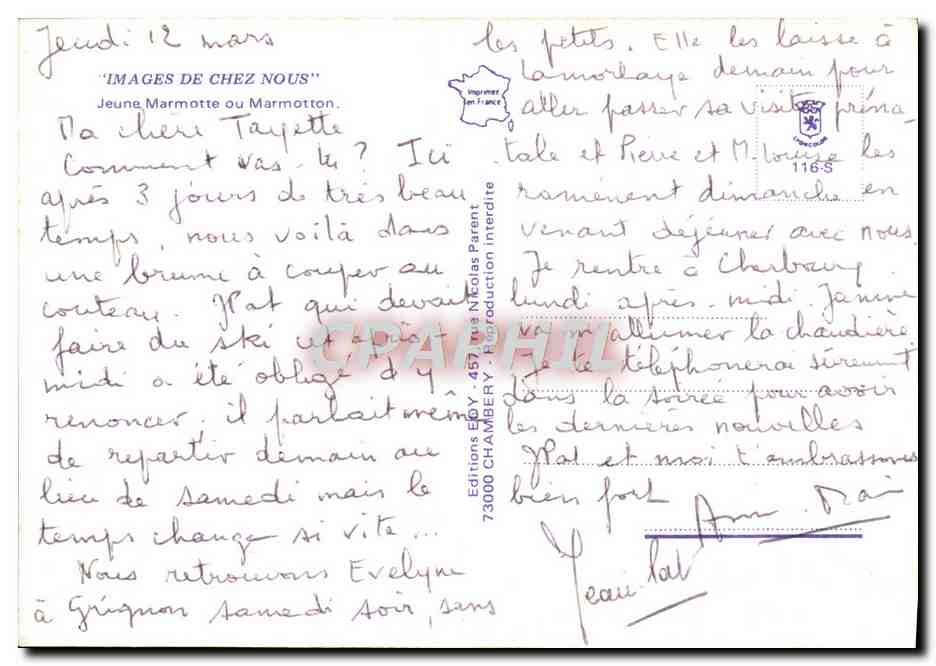 Jeudi 12 mars
"IMAGES DE CHEZ NOUS"
Jeune Marmotte ou Marmotton.
Ma chère Tayette
Comment vas-tu ? Ici
après 3 jours de très beau
temps, nous voilà dans
une brume à couper au
couteau. JPat qui devait
faire du ski cet après-
midi a été obligé d'y
renoncer, il parlait même
de repartir demain au
lieu de samedi mais le
temps change si vite...
Nous retrouvons Evelyne
à Grignon samedi soir, sans
les petits. Elle les laisse à
Lamorlaye demain pour
aller passer sa visite préna-
tale et Pierre et M. Louise les
ramènent dimanche en
venant déjeuner avec nous.
Je rentre à Cherbourg
lundi après-midi Janine
va m'allumer la chaudière
Je te téléphonerai sûrement
dans la soirée pour avoir
les dernières nouvelles
JPat et moi t'embrassons
bien fort
Jean-Pat
Imprimé
en France
116-S
Editions EDY - 457, rue Nicolas Parent
73000 CHAMBERY - Reproduction interdite
CPAPHIL